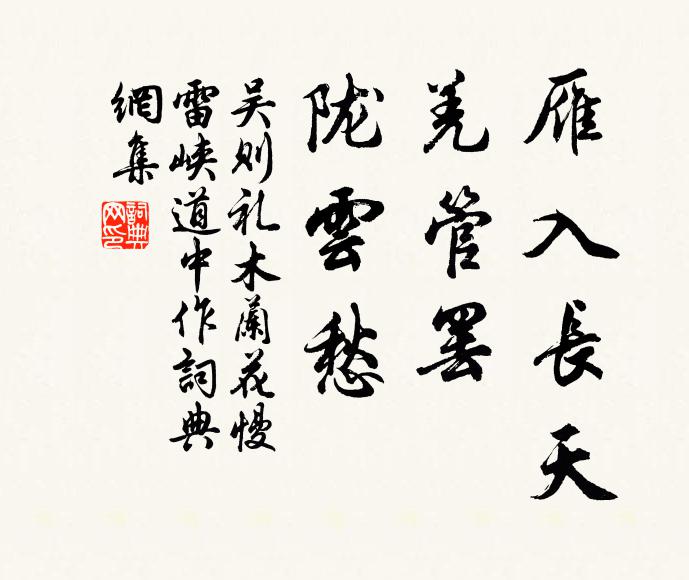 雁入長天
羌管罢
陇雲愁
吴则礼木蘭花慢
雷峡道中作詞典
網集
詞典
网印